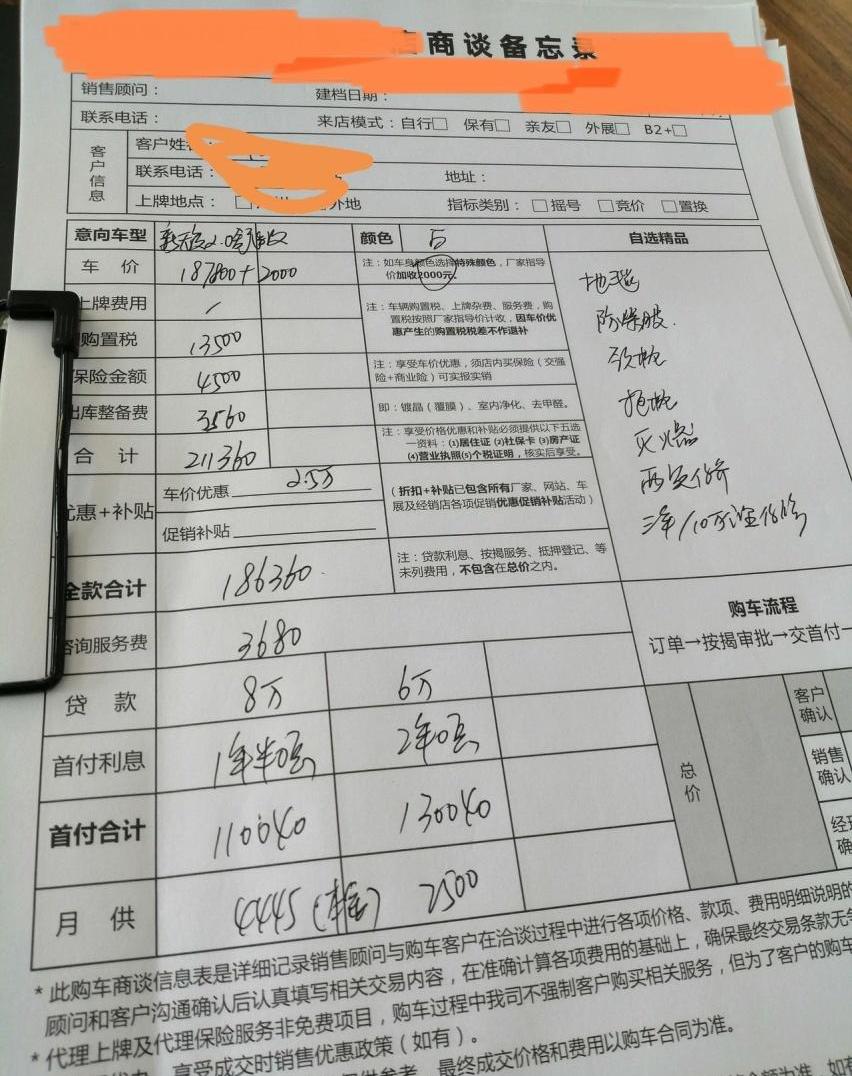 店商谈备忘录
销售顾问： 建档日期：
联系电话： 来店模式：自行□ 保有□ 亲友□ 外展□ B2+□
客户信息
客户姓名
联系电话： 地址：
上牌地点：□ 外地 指标类别：□摇号 □竞价 □置换
意向车型 新天籁2.0 颜色 白 自选精品
车 价 187800+2000 注：如车身颜色选择特殊颜色，厂家指导价加收2000元。
上牌费用 /
注：车辆购置税、上牌杂费、服务费，购置税按照厂家指导价计收，因车价优惠产生的购置税税差不作退补
购置税 13500
保险金额 4500 注：享受车价优惠，须店内买保险（交强险+商业险）可实报实销
出库整备费 3560 即：镀晶（覆膜）、室内净化、去甲醛。
合 计 211360 注：享受价格优惠和补贴必须提供以下五选一资料：⑴居住证⑵社保卡⑶房产证⑷营业执照⑸个税证明，核实后享受。
优惠+补贴 车价优惠 2.5万
促销补贴
（折扣+补贴已包含所有厂家、网站、车展及经销店各项促销优惠促销补贴活动）
全款合计 186360 注：贷款利息、按揭服务、抵押登记、等未列费用，不包含在总价之内。
咨询服务费 3680
贷 款 8万 6万
首付利息 1年半0息 2年0息
首付合计 110040 130040
月 供 4445 2500
地毯
防爆膜
颈枕
抱枕
灭火器
两次保养
3年/10万
购车流程
订单→按揭审批→交首付
总价
客户确认
销售确认
经理确
* 此购车商谈信息表是详细记录销售顾问与购车客户在洽谈过程中进行各项价格、款项、费用明细说明的
顾问和客户沟通确认后认真填写相关交易内容，在准确计算各项费用的基础上，确保最终交易条款无
* 代理上牌及代理保险服务非免费项目，购车过程中我司不强制客户购买相关服务，但为了客户的购车
享受成交时销售优惠政策（如有）。
最终成交价格和费用以购车合同为准。